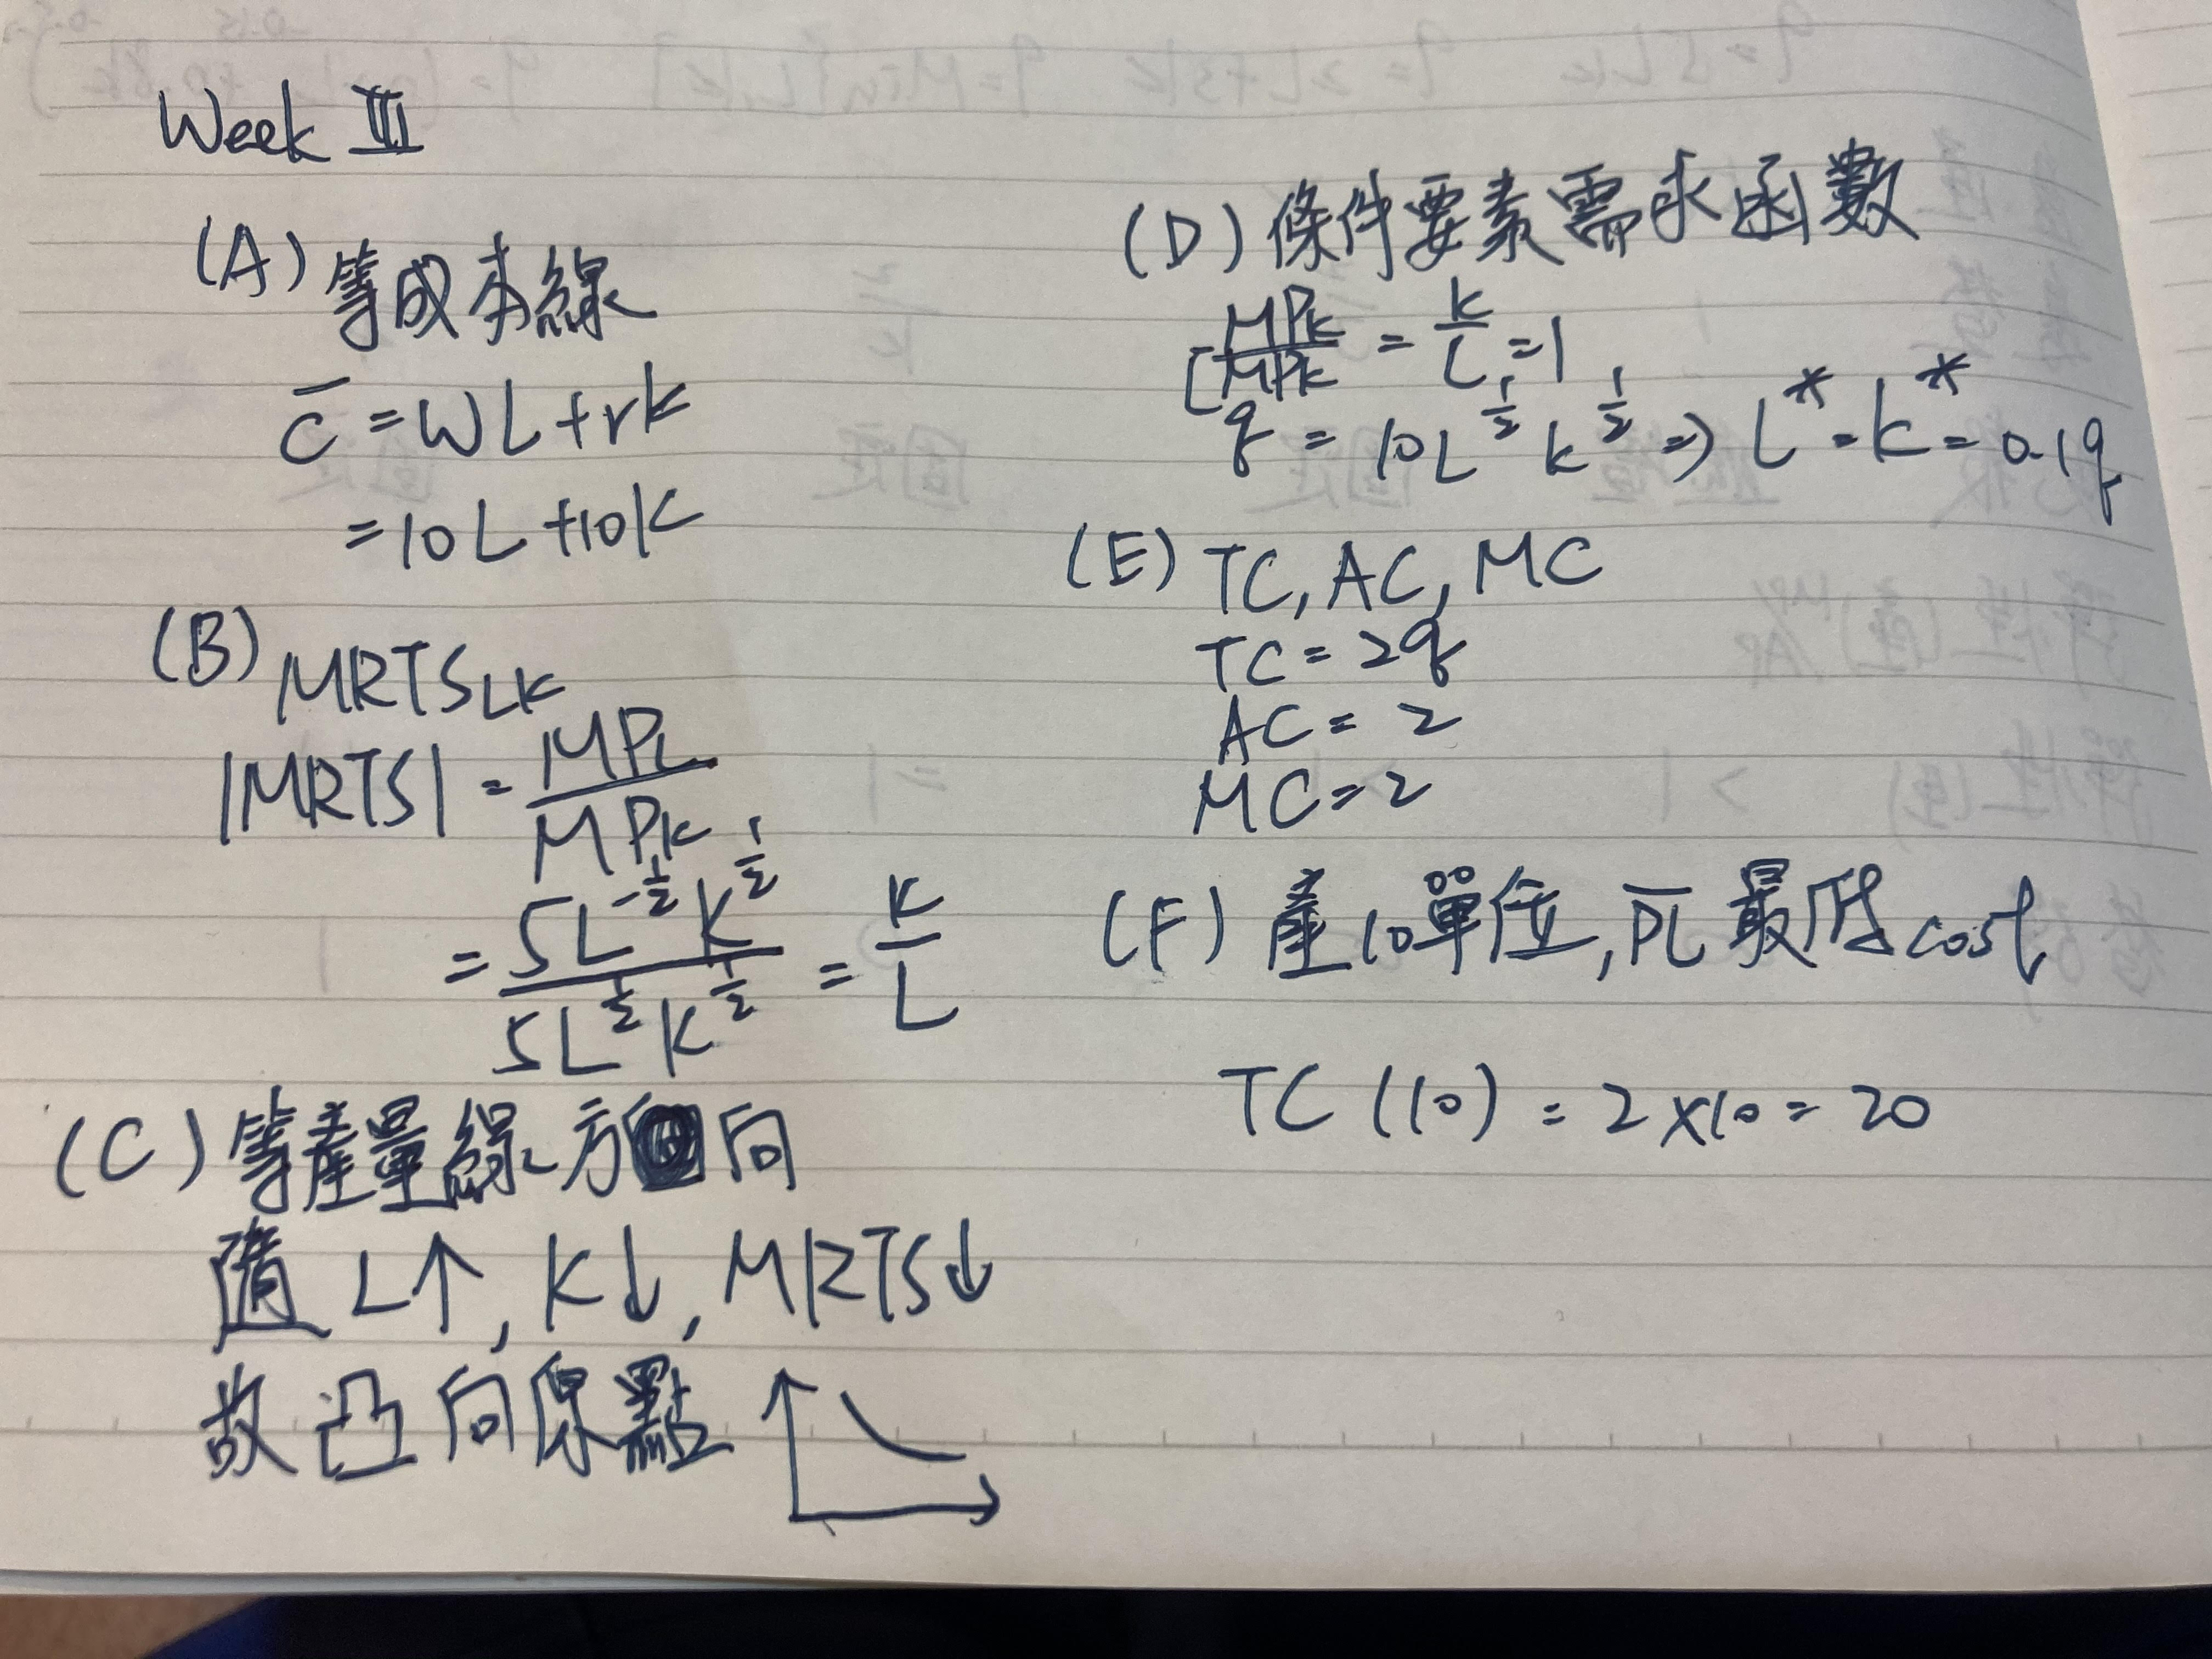 Week III
(A) 等成本線
c̄ = wL + rk
= 10L + 10K
(B) MRTS_LK
|MRTS| = MPL / MPK
= 5L^{-1/2} K^{1/2} / 5L^{1/2} K^{-1/2} = K / L
(C) 等產量線方向
隨 L↑, K↓, MRTS↓
故凸向原點
(D) 條件要素需求函數
MPK / MPK = k / L = 1
q = 10L^{1/2} k^{1/2} ⇒ L* = k* = 0.1q
(E) TC, AC, MC
TC = 2q
AC = 2
MC = 2
(F) 產10單位, 最低cost
TC (10) = 2×10 = 20